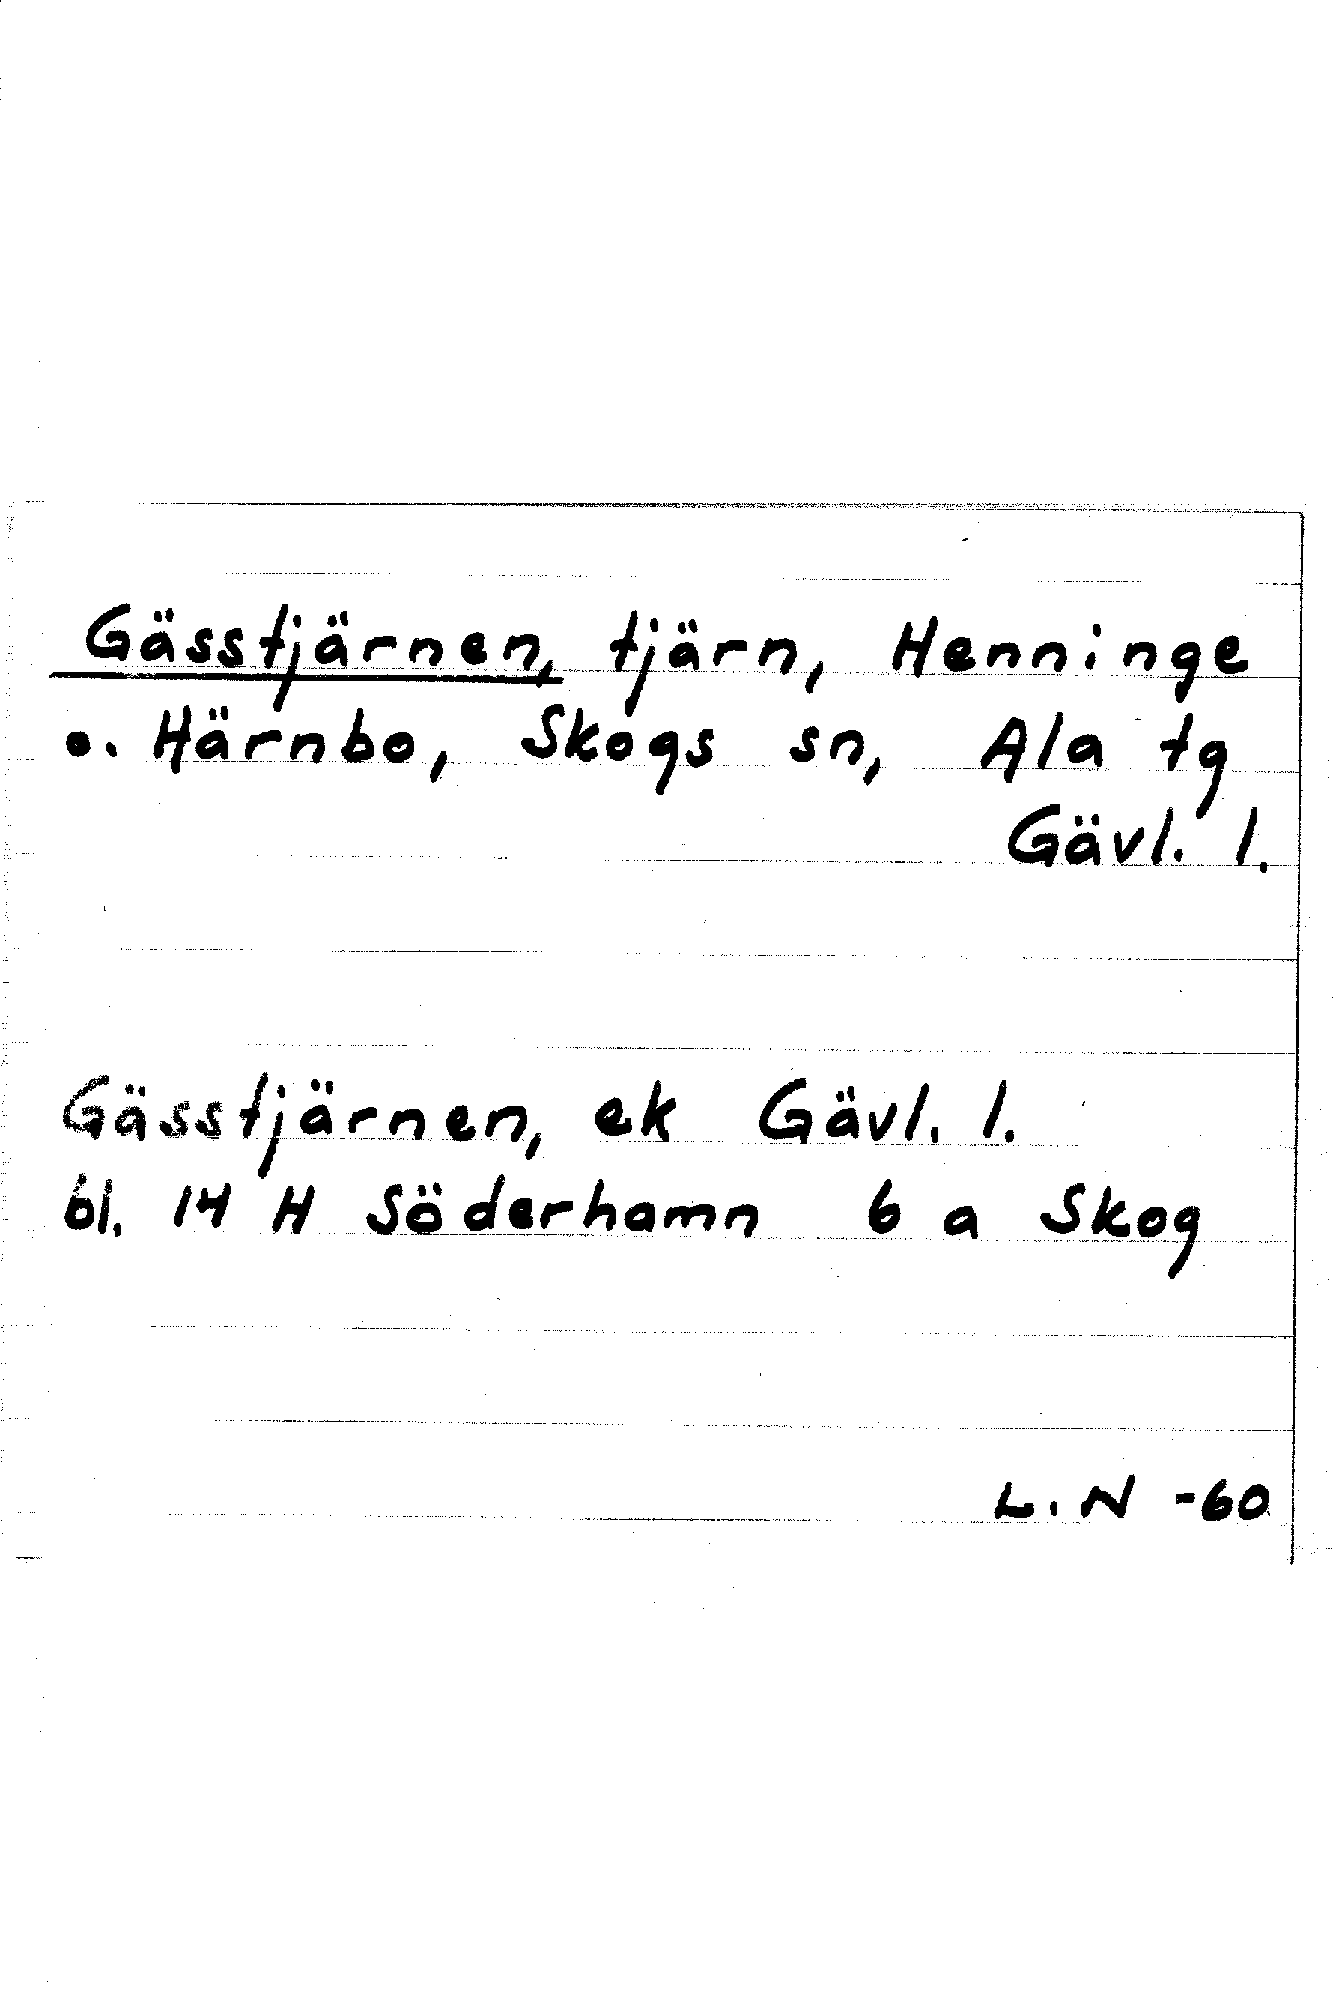 Gässtjärnen, tjärn, Henninge
o. Härnbo, Skogs sn, Ala tg
Gävl. l.
Gässtjärnen, ek Gävl. l.
bl. 14 H Söderhamn 6 a Skog
L. N -60